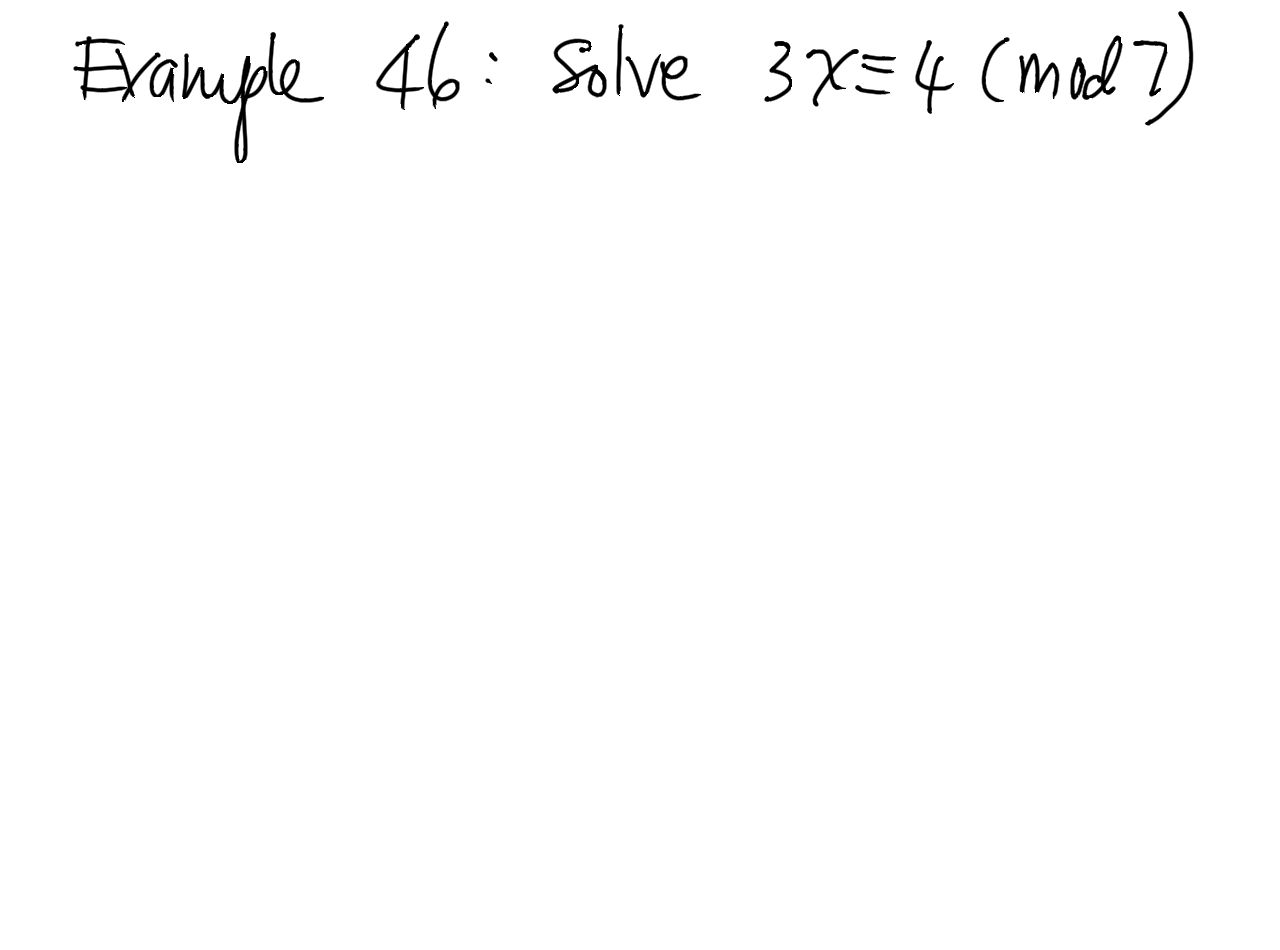 Example 46: Solve 3x≡4 (mod 7)